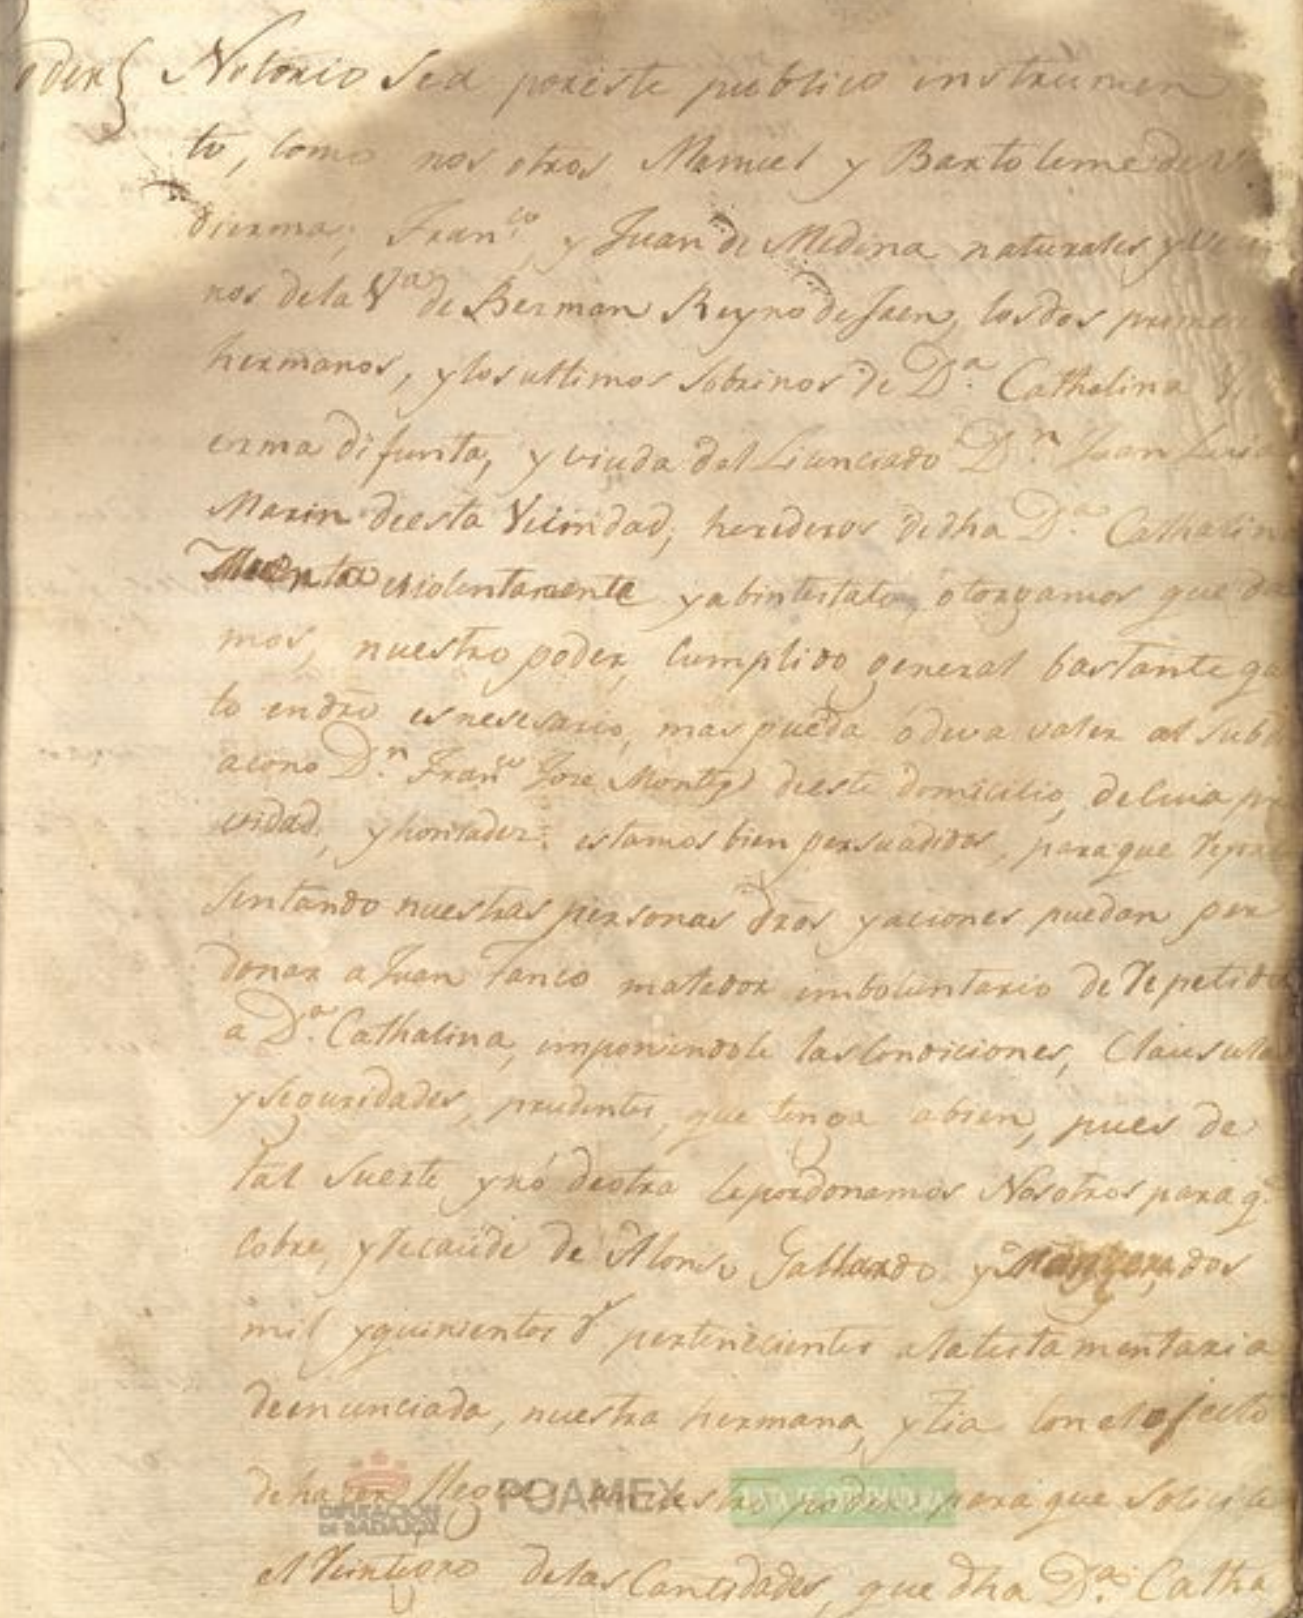 oder{ Notorio Sea poreste publico instrumen
to, como nos otros Manuel y Bartoleme de
dierma; Fran.co y Juan de Medina naturales y Veci
nos dela Va de Bexman Reyno de Jaen, los dos primer
hermanos, y los ultimos Sobrinos de D.a Cathalina Vi
erma difunta, y viuda del Licenciado D.n Juan Luis
Marin deesta Vecindad, herederos de dha D.a Cathalin
Muerta violentamente y abintestato, otorgamos que da
mos, nuestro poder, Cumplido general bastante qa
to endro es nesesario, mas pueda o deva valer al Subdi
acono D.n Fran.co Jose Montes deeste domicilio, de Cuia
vidad, y honrradez estamos bien persuadidos, para que Repre
sentando nuestras personas dros y aciones puedan per
donar a Juan Tanco matador imboluntario de Repetida
a D.a Cathalina, imponiendole las Condiciones, Clausula
y seguridades, prudentes, que tenga abien, pues de
tal Suerte y nó deotra le perdonamos Nosotros para q.e
Cobre, y Recaude de Alonso Gallardo y dos
mil y quinientos pertenecientes a la testamentaria
de enunciada, nuestra hermana, y tia con el ofecto
de haver poder para que Solicite
el Reintegro de las Cantidades, que dha D.a Catha
DIPUTACIÓN DE BADAJOZ
POAMEX
JUNTA DE EXTREMADURA